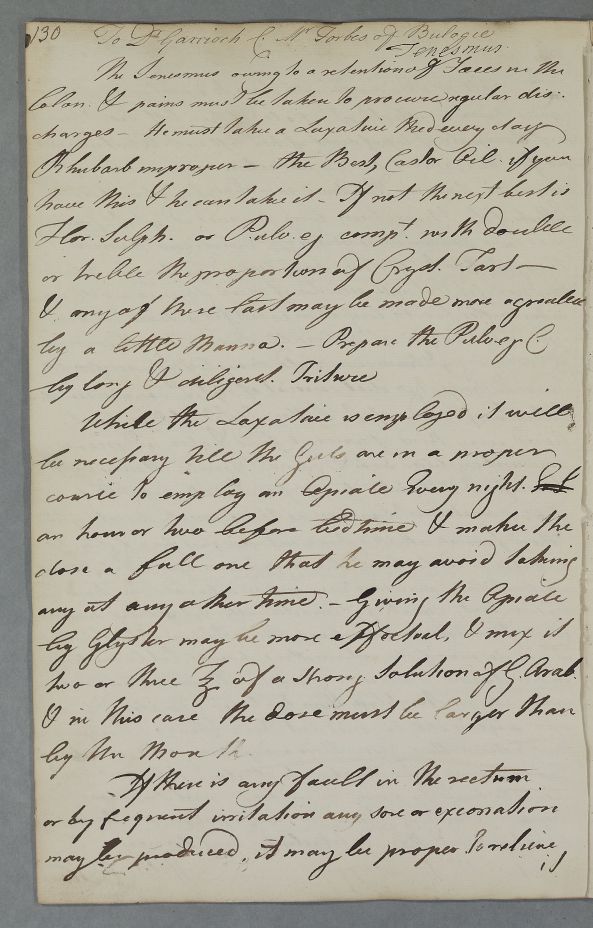 130 To Dr Garrioch C. Mr Forbes of Bulogie
Tenesmus
The Tenesmus owing to a retention of Faeces in the
Colon. & pains must be taken to procure regular dis:
charges – He must take a Laxative Med every day
Rhubarb improper – the Best, Castor Oil. if you
have this & he can take it – If not the next best is
Flor. Sulph. or Pulv. eg compt. with double
or treble the proportion of Cryst. Tart –
& any of these last may be made more agreeable
by a little Manna. – Prepare the Pulv eg C.
by long & diligent. Triture
While the Laxative is employed it will
be necessary till the Guts are in a proper
course to employ an Opiate Every night.
an hour or two before bedtime & make the
dose a full one that he may avoid taking
any at any other time. – Giving the Opiate
by Glyster may be more effectual, & mix it
two or three ℥ of a strong Solution of G Arab.
& in this case the dose must be larger than
by the Mouth.
If there is any fault in the rectum
or by frequent irritation any sore or excoriation
may be produced, it may be proper to relieve
it